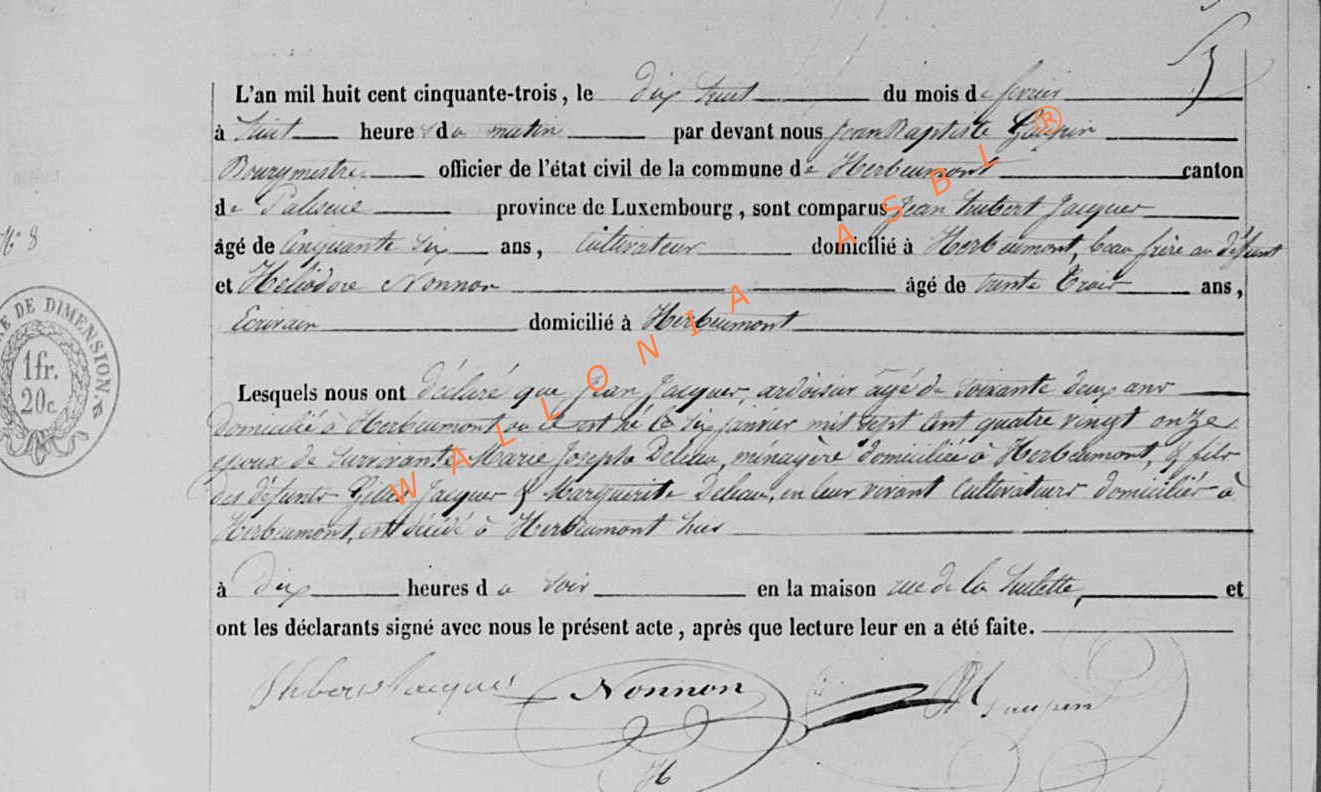 5
L'an mil huit cent cinquante-trois, le dix huit du mois de fevrier
à huit heures du matin par devant nous Jean Baptiste Gaupin
Bourgmestre officier de l'état civil de la commune de Herbeumont canton
de Paliseul province de Luxembourg, sont comparus Jean hubert Jacques
N° 8
âgé de Cinquante six ans, Cultivateur domicilié à Herbeumont, beau frère au défunt
et Héliodore Nonnon âgé de trente trois ans,
Ecrivain domicilié à Herbeumont
E DE DIMENSION.
1fr.
20c.
Lesquels nous ont déclaré que Jean Jacques, ardoisier âgé de soixante deux ans
domicilié à Herbeumont ou il est né le six janvier mil sept cent quatre vingt onze,
epoux de survivante Marie Josephe Deleau, ménagère domiciliée à Herbeumont, & fils
des défunts Jacques & Marguerite Deleau, en leur vivant Cultivateurs domiciliés à
Herbeumont, est décédé à Herbeumont hier
à dix heures du soir en la maison rue de la hulette, et
ont les déclarants signé avec nous le présent acte, après que lecture leur en a été faite.
Hubert Jacques Nonnon Gaupin
WALLONIA ASBL ®